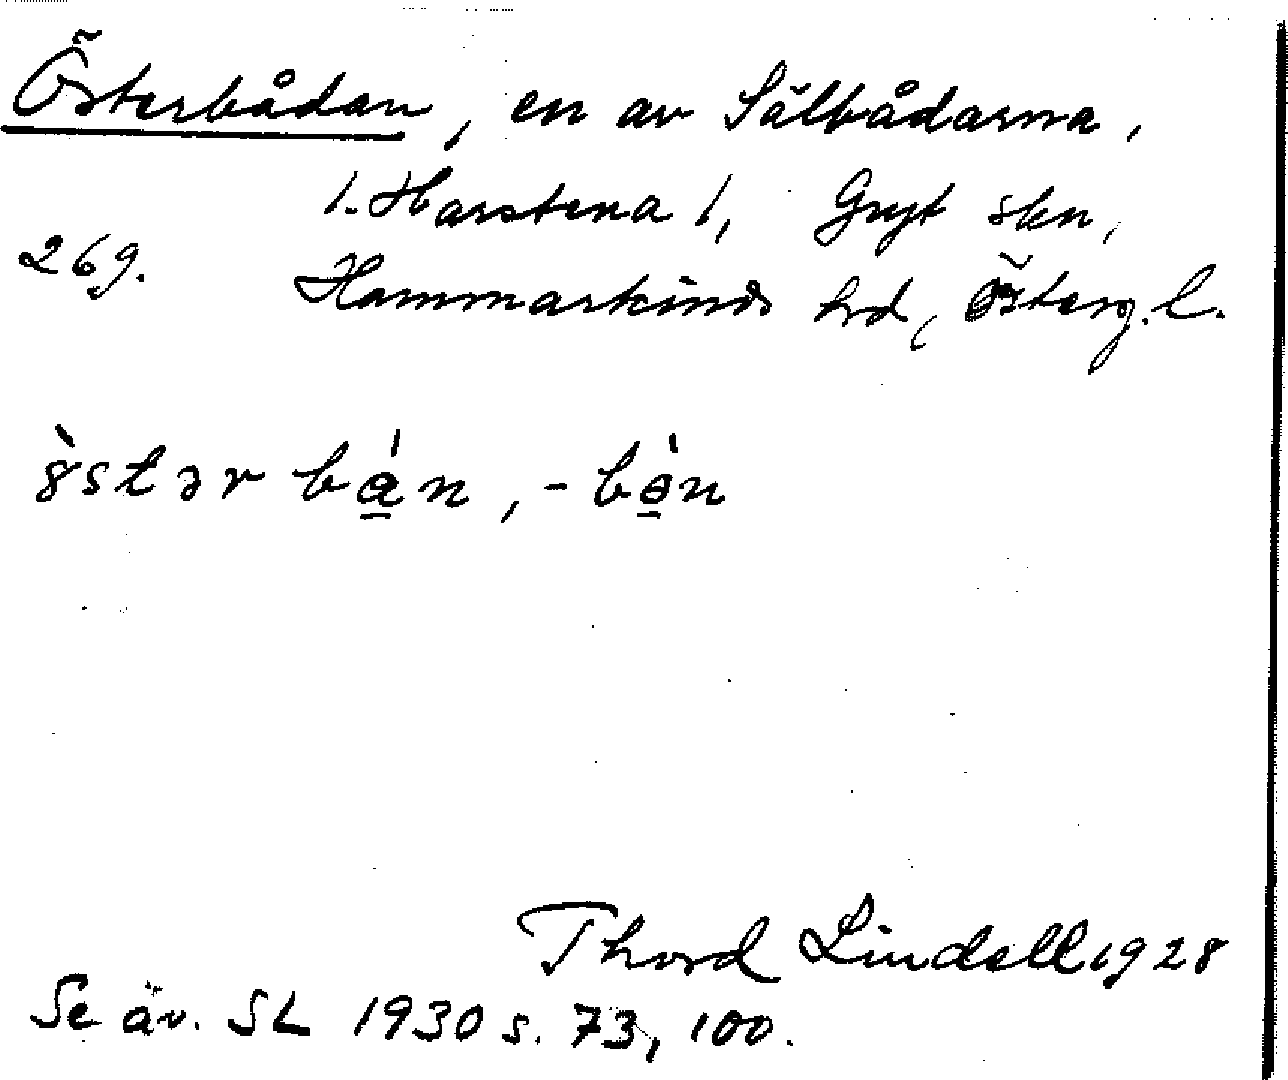 Österbådan, en av Sälbådarna,
1. Harstena 1, Gryt skn,
269. Hammarkinds hrd, Österg. l.
ö̀stər bá̱n, -bò̱n
Thord Lindell 1928
Se äv. SL 1930 s. 73, 100.